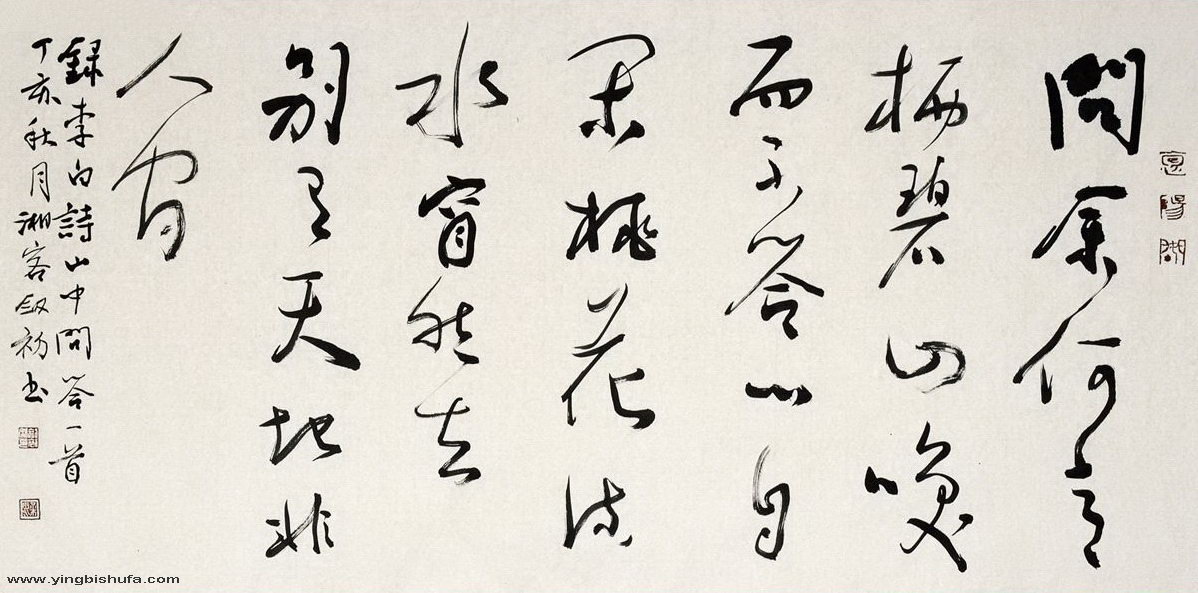 問余何意
栖碧山咲
而不答心自
閑桃花流
水窅然去
别有天地非
人間
録李白詩山中問答一首
丁亥秋月湘客初书
www.yingbishufa.com